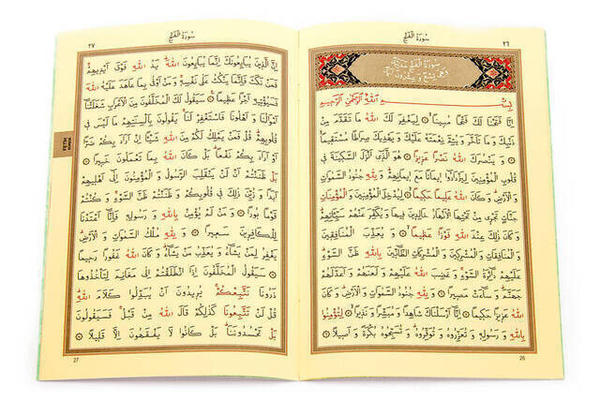 سُورَةُ الْفَتْحِ ٢٦
سُورَةُ الْفَتْحِ مَدَنِيَّةٌ
وَهِيَ تِسْعٌ وَعِشْرُونَ آيَةً
بِسْمِ اللّٰهِ الرَّحْمٰنِ الرَّحِيمِ
اِنَّا فَتَحْنَا لَكَ فَتْحًا مُبِينًا لِيَغْفِرَ لَكَ اللّٰهُ مَا تَقَدَّمَ مِنْ
ذَنْبِكَ وَمَا تَاَخَّرَ وَيُتِمَّ نِعْمَتَهُ عَلَيْكَ وَيَهْدِيَكَ صِرَاطًا مُسْتَقِيمًا
وَيَنْصُرَكَ اللّٰهُ نَصْرًا عَزِيزًا هُوَ الَّذِي اَنْزَلَ السَّكِينَةَ فِي
قُلُوبِ الْمُؤْمِنِينَ لِيَزْدَادُوا اِيمَانًا مَعَ اِيمَانِهِمْ وَلِلّٰهِ جُنُودُ السَّمٰوَاتِ
وَالْاَرْضِ وَكَانَ اللّٰهُ عَلِيمًا حَكِيمًا لِيُدْخِلَ الْمُؤْمِنِينَ وَالْمُؤْمِنَاتِ
جَنَّاتٍ تَجْرِي مِنْ تَحْتِهَا الْاَنْهَارُ خَالِدِينَ فِيهَا وَيُكَفِّرَ عَنْهُمْ سَيِّئَاتِهِمْ
وَكَانَ ذٰلِكَ عِنْدَ اللّٰهِ فَوْزًا عَظِيمًا وَيُعَذِّبَ الْمُنَافِقِينَ
وَالْمُنَافِقَاتِ وَالْمُشْرِكِينَ وَالْمُشْرِكَاتِ الظَّانِّينَ بِاللّٰهِ ظَنَّ السَّوْءِ
عَلَيْهِمْ دَائِرَةُ السَّوْءِ وَغَضِبَ اللّٰهُ عَلَيْهِمْ وَلَعَنَهُمْ وَاَعَدَّ لَهُمْ
جَهَنَّمَ وَسَاءَتْ مَصِيرًا وَلِلّٰهِ جُنُودُ السَّمٰوَاتِ وَالْاَرْضِ وَكَانَ
اللّٰهُ عَزِيزًا حَكِيمًا اِنَّا اَرْسَلْنَاكَ شَاهِدًا وَمُبَشِّرًا وَنَذِيرًا لِتُؤْمِنُوا
بِاللّٰهِ وَرَسُولِهِ وَتُعَزِّرُوهُ وَتُوَقِّرُوهُ وَتُسَبِّحُوهُ بُكْرَةً وَاَصِيلًا
26
سُورَةُ الْفَتْحِ ٢٧
اِنَّ الَّذِينَ يُبَايِعُونَكَ اِنَّمَا يُبَايِعُونَ اللّٰهَ يَدُ اللّٰهِ فَوْقَ اَيْدِيهِمْ
فَمَنْ نَكَثَ فَاِنَّمَا يَنْكُثُ عَلٰى نَفْسِهِ وَمَنْ اَوْفٰى بِمَا عَاهَدَ عَلَيْهُ اللّٰهَ
فَسَيُؤْتِيهِ اَجْرًا عَظِيمًا سَيَقُولُ لَكَ الْمُخَلَّفُونَ مِنَ الْاَعْرَابِ شَغَلَتْنَا
اَمْوَالُنَا وَاَهْلُونَا فَاسْتَغْفِرْ لَنَا يَقُولُونَ بِاَلْسِنَتِهِمْ مَا لَيْسَ فِي
قُلُوبِهِمْ قُلْ فَمَنْ يَمْلِكُ لَكُمْ مِنَ اللّٰهِ شَيْئًا اِنْ اَرَادَ بِكُمْ ضَرًّا
اَوْ اَرَادَ بِكُمْ نَفْعًا بَلْ كَانَ اللّٰهُ بِمَا تَعْمَلُونَ خَبِيرًا
بَلْ ظَنَنْتُمْ اَنْ لَنْ يَنْقَلِبَ الرَّسُولُ وَالْمُؤْمِنُونَ اِلٰى اَهْلِيهِمْ
اَبَدًا وَزُيِّنَ ذٰلِكَ فِي قُلُوبِكُمْ وَظَنَنْتُمْ ظَنَّ السَّوْءِ وَكُنْتُمْ
قَوْمًا بُورًا وَمَنْ لَمْ يُؤْمِنْ بِاللّٰهِ وَرَسُولِهِ فَاِنَّا اَعْتَدْنَا
لِلْكَافِرِينَ سَعِيرًا وَلِلّٰهِ مُلْكُ السَّمٰوَاتِ وَالْاَرْضِ
يَغْفِرُ لِمَنْ يَشَاءُ وَيُعَذِّبُ مَنْ يَشَاءُ وَكَانَ اللّٰهُ غَفُورًا رَحِيمًا
سَيَقُولُ الْمُخَلَّفُونَ اِذَا انْطَلَقْتُمْ اِلٰى مَغَانِمَ لِتَاْخُذُوهَا
ذَرُونَا نَتَّبِعْكُمْ يُرِيدُونَ اَنْ يُبَدِّلُوا كَلَامَ اللّٰهِ
قُلْ لَنْ تَتَّبِعُونَا كَذٰلِكُمْ قَالَ اللّٰهُ مِنْ قَبْلُ فَسَيَقُولُونَ
بَلْ تَحْسُدُونَنَا بَلْ كَانُوا لَا يَفْقَهُونَ اِلَّا قَلِيلًا
27
FETİH